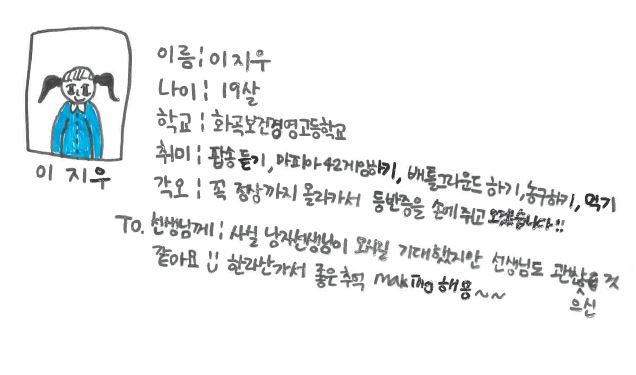 이름 : 이지우
나이 : 19살
학교 : 화곡보건경영고등학교
취미 : 팝송듣기, 마피아42게임하기, 배틀그라운드 하기, 농구하기, 먹기
각오 : 꼭 정상까지 올라가서 등반증을 손에 쥐고 오겠습니다!!
이지우
To. 선생님께 : 사실 남자선생님이 오시길 기대했지만 선생님도 괜찮을 것
으신
같아요 :) 한라산가서 좋은추억 making 해용~~